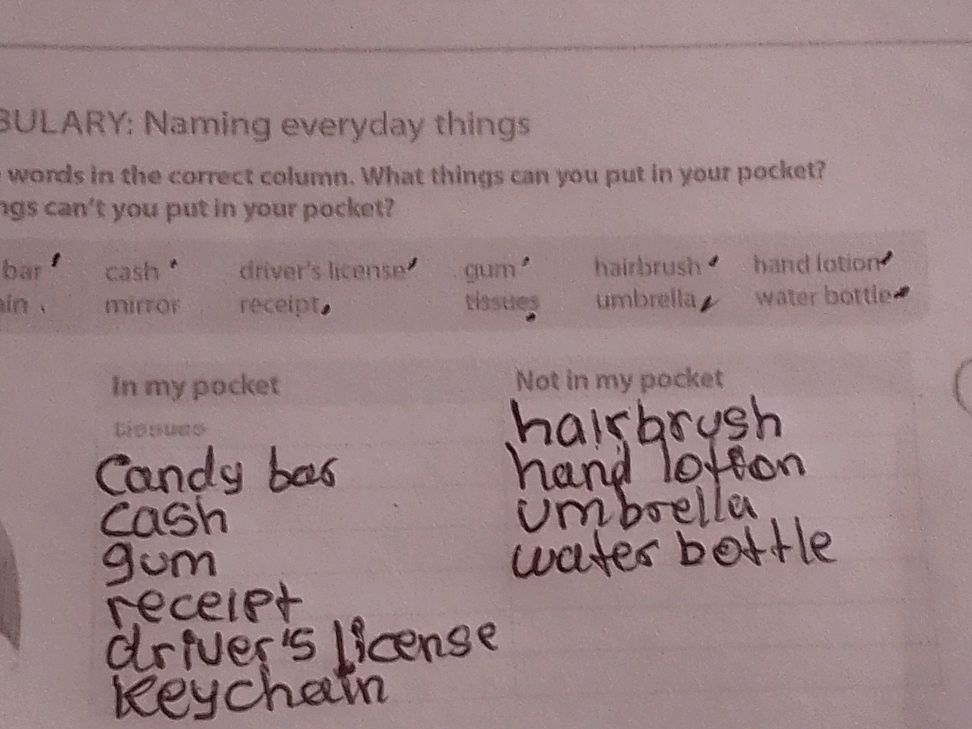 BULARY: Naming everyday things
words in the correct column. What things can you put in your pocket?
ngs can't you put in your pocket?
bar cash driver's license gum hairbrush hand lotion
ain mirror receipt tissues umbrella water bottle
In my pocket Not in my pocket
tissues hairbrush
Candy bar hand lotion
cash umbrella
gum water bottle
receipt
driver's license
keychain